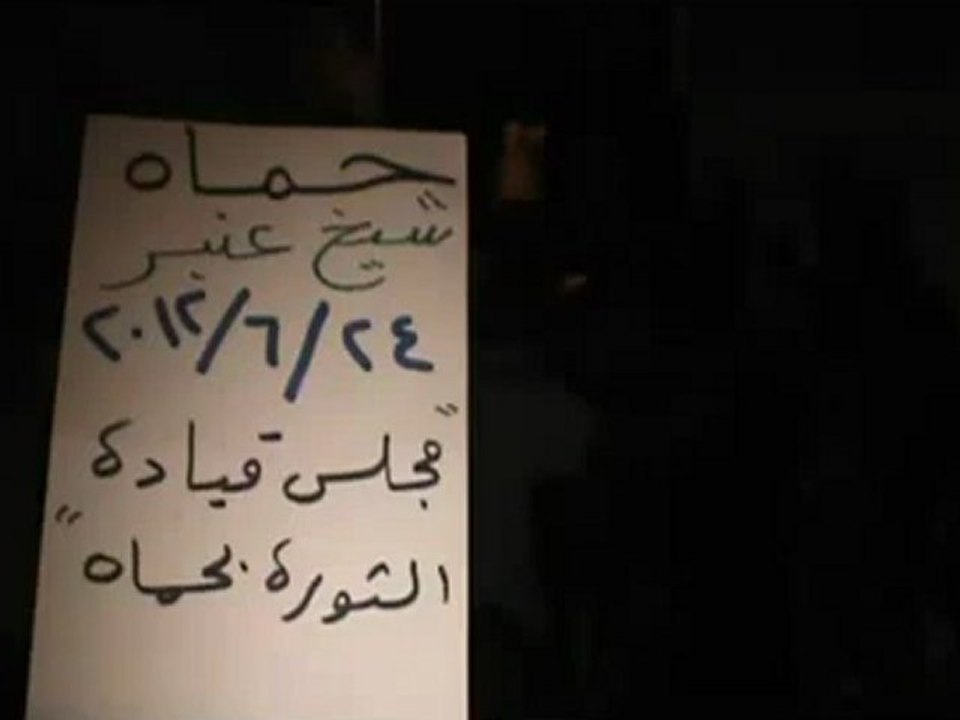 حماه
شيخ عنبر
٢٠١٢/٦/٢٤
"مجلس قيادة
الثورة بحماه"